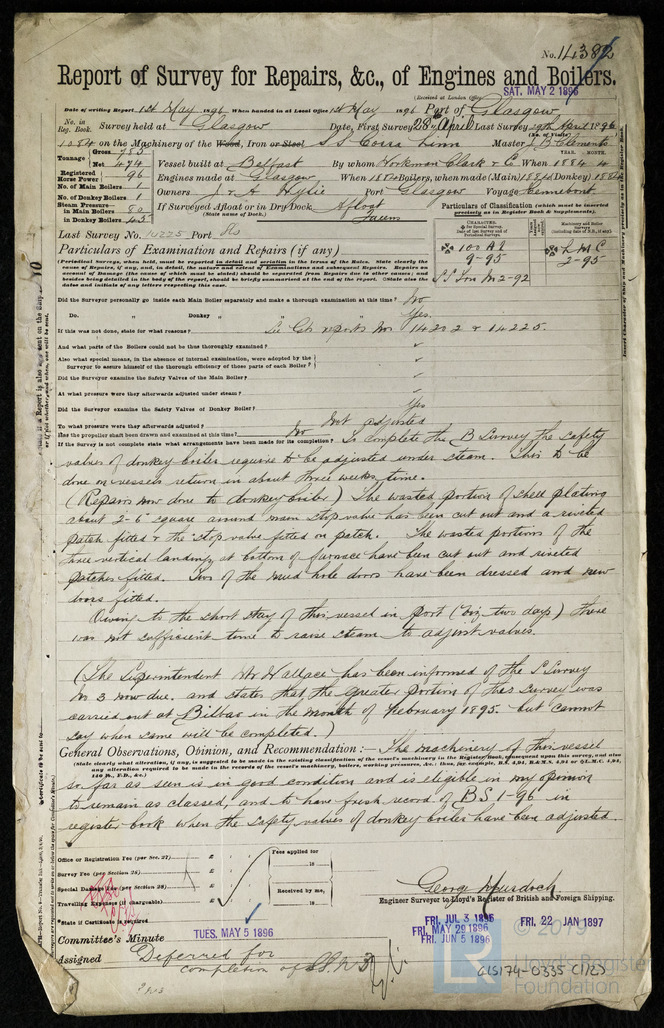 No. 14382
Report of Survey for Repairs, &c., of Engines and Boilers.
(Received at London Office SAT. MAY 2 1896
Date of writing Report 1st May 1896 When handed in at Local Office 1st May 1896 Port of Glasgow
No. in Reg. Book. Survey held at Glasgow Date, First Survey 28th April Last Survey 29th April 1896
1084 on the Machinery of the Wood, Iron or Steel S S Corra Linn Master J B Clements
Tonnage Gross 753 Net 474 Vessel built at Belfast By whom Workman Clark & Co When 1884 4
Registered Horse Power 96 Engines made at Glasgow When 1884 Boilers, when made (Main) 1884 (Donkey) 1884
No. of Main Boilers 1 Owners J & A Wylie Port Glasgow Voyage
No. of Donkey Boilers 1
Steam Pressure in Main Boilers 80 If Surveyed Afloat or in Dry Dock Afloat
in Donkey Boilers 45 (State name of Dock.)
Particulars of Classification (which must be inserted precisely as in Register Book & Supplements).
Last Survey No. 14225 Port Gls
100 A1 9-95
L M C 2-95
S S Lon No 2-92
Particulars of Examination and Repairs (if any)
(Periodical Surveys, when held, must be reported in detail and seriatim in the terms of the Rules. State clearly the cause of Repairs, if any, and, in detail, the nature and extent of Examinations and subsequent Repairs.
Did the Surveyor personally go inside each Main Boiler separately and make a thorough examination at this time? No
Do. " Donkey " " " Yes.
If this was not done, state for what reasons? See Gls reports Nos 14202 & 14225.
And what parts of the Boilers could not be thus thoroughly examined?
Also what special means, in the absence of internal examination, were adopted by the Surveyor to assure himself of the thorough efficiency of those parts of each Boiler?
Did the Surveyor examine the Safety Valves of the Main Boiler?
At what pressure were they afterwards adjusted under steam?
Did the Surveyor examine the Safety Valves of Donkey Boiler? Yes
To what pressure were they afterwards adjusted? Not adjusted
Has the propeller shaft been drawn and examined at this time? No
If the Survey is not complete state what arrangements have been made for its completion? To complete the B Survey the safety
valves of donkey boiler require to be adjusted under steam. This to be
done on vessels return in about three weeks time.
(Repairs now done to donkey boiler) The wasted portion of shell plating
about 2-6 square around main stop valve has been cut out and a riveted
patch fitted & the stop valve fitted on patch. The wasted portions of the
three vertical landings at bottom of furnace have been cut out and riveted
patches fitted. Two of the mud hole doors have been dressed and new
doors fitted.
Owing to the short stay of this vessel in port (viz two days) there
was not sufficient time to raise steam to adjust valves.
(The Superintendent Mr Wallace has been informed of the S Survey
No 3 now due. and states that the greater portion of this Survey was
carried out at Bilbao in the month of February 1895. but cannot
say when same will be completed.)
General Observations, Opinion, and Recommendation :— The machinery of this vessel
(State clearly what alteration, if any, is suggested to be made in the existing classification of the vessel's machinery in the Register Book, consequent upon this survey, and also any alteration required to be made in the records of the vessel's machinery, boilers, working pressures, &c.
so far as seen is in good condition and is eligible in my opinion
to remain as classed, and to have fresh record of B S 1-96 in
register book when the safety valves of donkey boiler have been adjusted.
Office or Registration Fee (per Sec. 27) £
Survey Fee (per Section 28) £
Special Damage Fee (per Section 28) £
Travelling Expenses (if chargeable) £
Fees applied for
18
Received by me,
18
George Murdoch
Engineer Surveyor to Lloyd's Register of British and Foreign Shipping.
State if Certificate is required
Committee's Minute TUES. MAY 5 1896
FRI. JUL 3 1896
FRI. MAY 29 1896
FRI. JUN 5 1896
FRI. 22 JAN 1897
Assigned Deferred for
completion of SS No 3
© 2019
LR
Lloyd's Register
Foundation
GLS174-0335 (1/2)